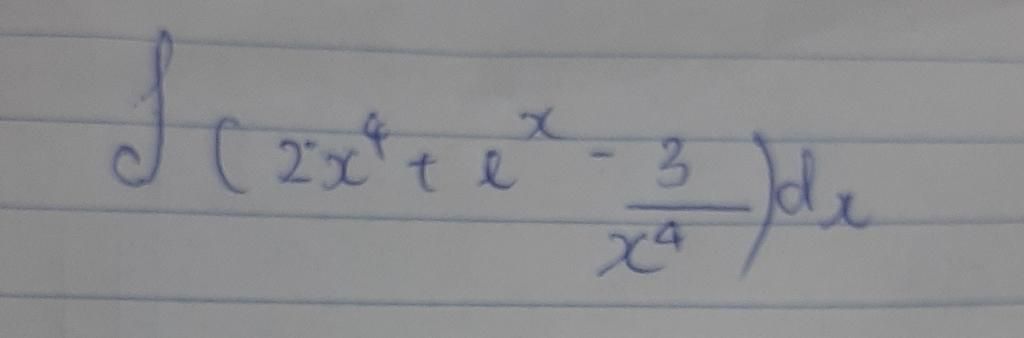 ∫ (2x⁴ + e^x - 3/x⁴) dx